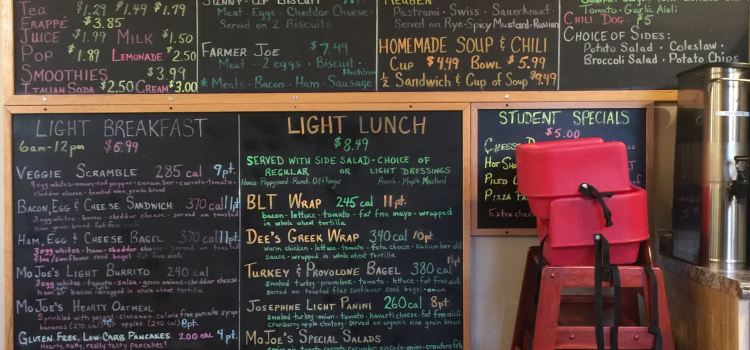 Tea $1.29 $1.49 $1.79
Frappé $3.85
Juice $1.99 Milk $1.50
Pop $1.89 Lemonade $2.50
Smoothies $3.99
Italian Soda $2.50 Cream $3.00
Meat · Eggs · Cheddar Cheese
Served on 2 Biscuits
Farmer Joe $7.49
Meat · 2 eggs · Biscuit
*Meats- Bacon · Ham · Sausage
Reuben
Pastrami · Swiss · Sauerkraut
Served on Rye · Spicy Mustard · Russian
Homemade Soup & Chili
Cup $4.99 Bowl $5.99
½ Sandwich & Cup of Soup $9.49
Tomato · Garlic Aioli
Chili Dog $5
Choice of Sides:
Potato Salad · Coleslaw ·
Broccoli Salad · Potato Chips
Light Breakfast
6am-12pm $6.99
Veggie Scramble 285 cal 9pt.
cheddar cheese · toasted nine grain bread
Bacon, Egg & Cheese Sandwich 370 cal 11pt
3 egg whites · bacon · cheddar cheese · served on toasted
nine grain bread · fat free aioli
Ham, Egg & Cheese Bagel 370 cal 11pt.
3 egg whites · ham · cheddar cheese · served on toasted
flax/sunflower seed bagel fat free aioli
MoJoe's Light Burrito 240 cal
3 egg whites · tomato · salsa · green onions · cheddar cheese
ham or bacon · wrapped in whole wheat tortilla
MoJoe's Hearty Oatmeal
Sprinkled with pecans · cinnamon · calorie free pancake syrup
bananas (270 cal) apples (240 cal) 8pt
Gluten Free, Low-Carb Pancakes 200 cal 4pt.
Hearty, nutty, really tasty pancakes!
Light Lunch
$8.49
Served with side salad · choice of
regular or light dressings
House Poppyseed · Ranch · Oil & Vinegar Ranch · Maple Mustard
BLT Wrap 245 cal 11pt.
bacon · lettuce · tomato · fat free mayo · wrapped
in whole wheat tortilla
Dee's Greek Wrap 340 cal 10pt.
warm chicken · lettuce · tomato · feta cheese · cucumber dill
sauce · wrapped in whole wheat tortilla
Turkey & Provolone Bagel 380 cal 11pt
smoked turkey · provolone · tomato · lettuce · fat free aioli
served on toasted flax sunflower seed bagel · onion
Josephine Light Panini 260 cal 8pt
smoked turkey · onion · tomato · havarti cheese · fat free aioli
cranberry apple chutney · served on organic nine grain bread
MoJoe's Special Salads
Student Specials
$5.00
Extra chee